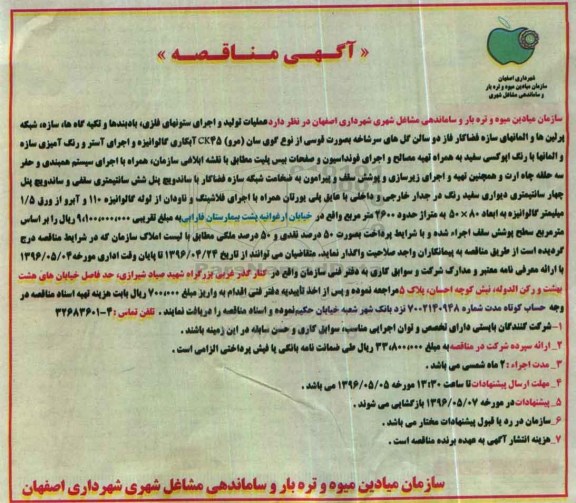 شهرداری اصفهان
سازمان میادین میوه و تره بار
و ساماندهی مشاغل شهری
« آگـهـی مـنـاقـصـه »
سازمان میادین میوه و تره بار و ساماندهی مشاغل شهری شهرداری اصفهان در نظر دارد عملیات تولید و اجرای ستونهای فلزی، بادبندها و تکیه گاه ها، سازه، شبکه
پرلین ها و المانهای سازه فضاکار فاز دو سالن گل های سرشاخه بصورت قوسی از نوع گوی سان (مرو) CK۴۵ آبکاری گالوانیزه و اجرای آستر و رنگ آمیزی سازه
و المانها با رنگ اپوکسی سفید به همراه تهیه مصالح و اجرای فونداسیون و صفحات بیس پلیت مطابق با نقشه ابلاغی سازمان، همراه با اجرای سیستم همبندی و حفر
سه حلقه چاه ارت و همچنین تهیه و اجرای زیرسازی و پوشش سقف و پیرامون به ضخامت شبکه سازه فضاکار با ساندویچ پنل شش سانتیمتری سقفی و ساندویچ پنل
چهار سانتیمتری دیواری سفید رنگ در جدار خارجی و داخلی با عایق پلی یورتان همراه با اجرای فلاشینگ و ناودان از لوله گالوانیزه ۱۱۰ و آبرو از ورق ۱/۵
میلیمتر گالوانیزه به ابعاد ۸۰ × ۵۰ به متراژ حدود ۲۶۰۰ متر مربع واقع در خیابان ارغوانیه پشت بیمارستان فارابی به مبلغ تقریبی ۹،۱۰۰،۰۰۰،۰۰۰ ریال را بر اساس
مترمربع سطح پوشش سقف اجراء شده و با شرایط پرداخت بصورت ۵۰ درصد نقدی و ۵۰ درصد ملکی مطابق با لیست املاک سازمان که در شرایط مناقصه درج
گردیده است از طریق مناقصه به پیمانکاران واجد صلاحیت واگذار نماید. متقاضیان می توانند از تاریخ ۱۳۹۶/۰۴/۲۴ تا پایان وقت اداری مورخه ۱۳۹۶/۰۵/۰۴
با ارائه معرفی نامه معتبر و مدارک شرکت و سوابق کاری به دفتر فنی سازمان واقع در کنار گذر غربی بزرگراه شهید صیاد شیرازی، حد فاصل خیابان های هشت
بهشت و رکن الدوله، نبش کوچه احسان، پلاک ۵ مراجعه نموده و پس از اخذ تأییدیه دفتر فنی اقدام به واریز مبلغ ۷۰۰،۰۰۰ ریال بابت هزینه تهیه اسناد مناقصه در
وجه حساب کوتاه مدت شماره ۷۰۰۲۱۴۰۹۴۸ نزد بانک شهر شعبه خیابان حکیم نموده و اسناد مناقصه را دریافت نمایند . تلفن تماس : ۴-۳۲۶۸۳۶۰۱
۱- شرکت کنندگان بایستی دارای تخصص و توان اجرایی مناسب، سوابق کاری و حسن سابقه در این زمینه باشند .
۲_ ارائه سپرده شرکت در مناقصه به مبلغ ۳۳،۸۰۰،۰۰۰ ریال طی ضمانت نامه بانکی یا فیش پرداختی الزامی است .
۳_ مدت اجراء : ۲ ماه شمسی می باشد .
۴_ مهلت ارسال پیشنهادات تا ساعت ۱۳:۳۰ مورخه ۱۳۹۶/۰۵/۰۵ می باشد .
۵_ پیشنهادات در مورخه ۱۳۹۶/۰۵/۰۷ بازگشایی می شوند .
۶_ سازمان در رد یا قبول پیشنهادات مختار می باشد .
۷_ هزینه انتشار آگهی به عهده برنده مناقصه است .
سازمان میادین میوه و تره بار و ساماندهی مشاغل شهری شهرداری اصفهان